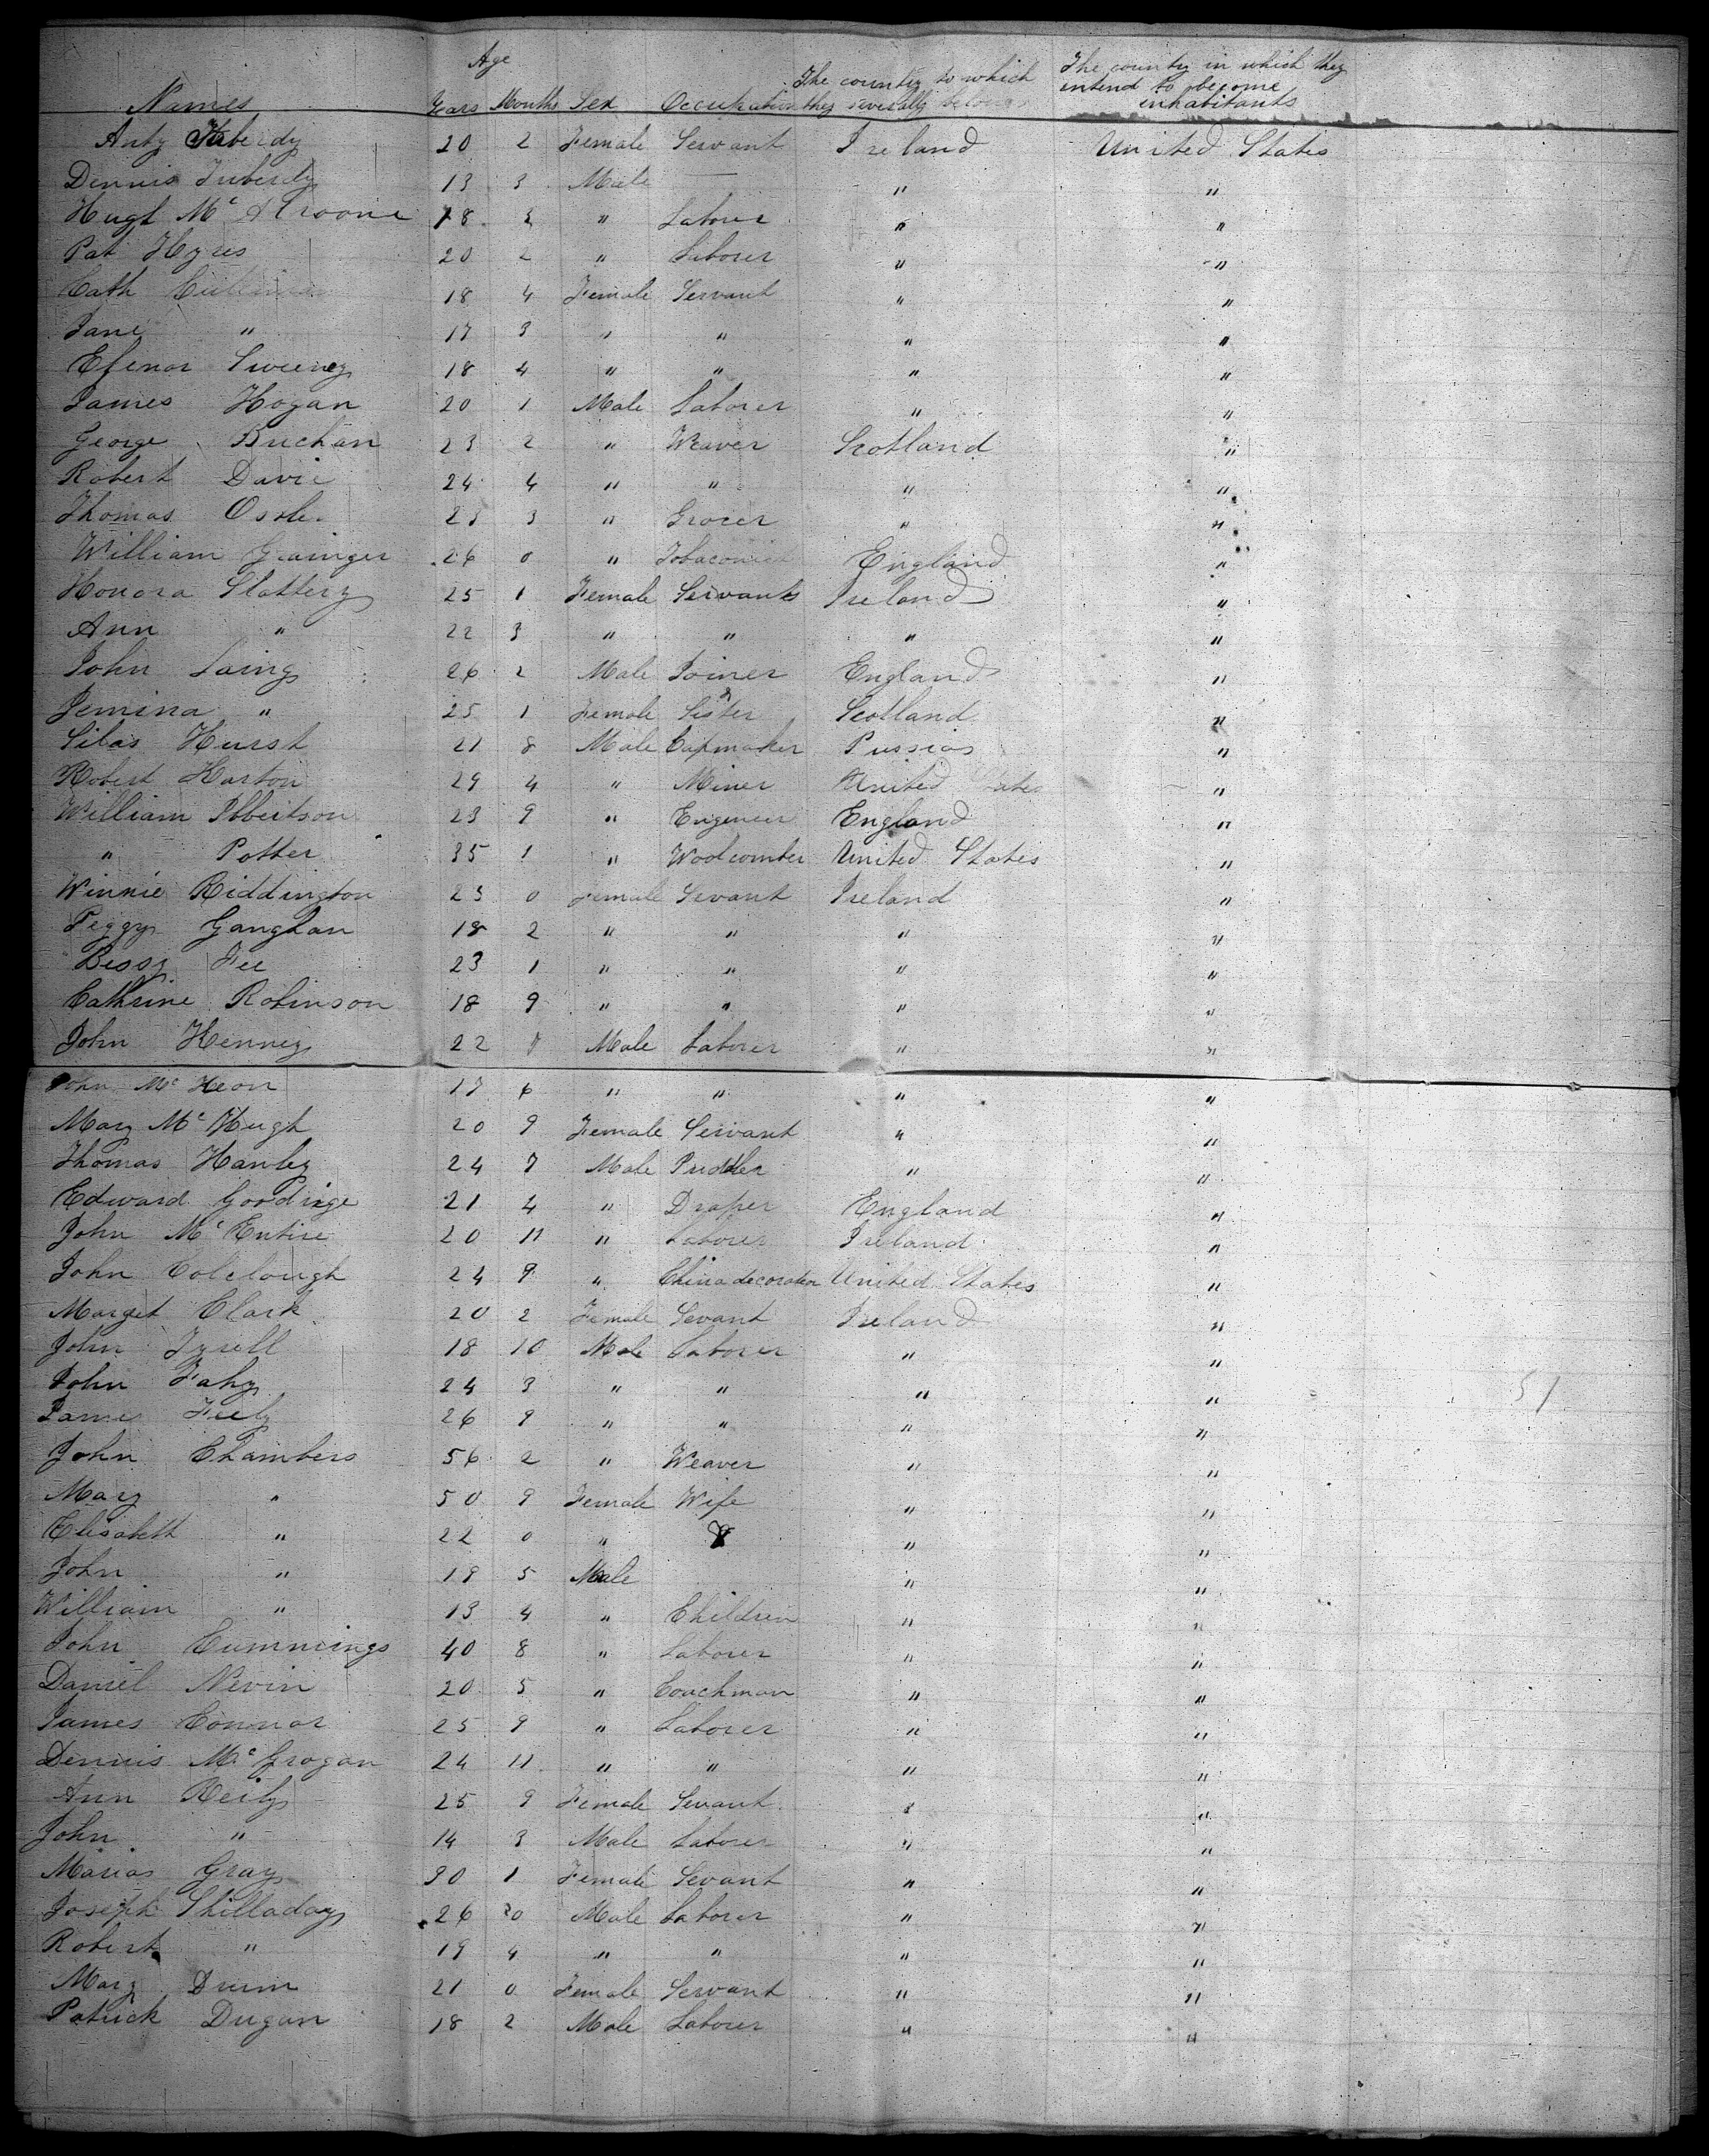 Age
Names Years Months Sex Occupation The country to which they severally belong The country in which they intend to become inhabitants
Anty 20 2 Female Servant Ireland United States
Dennis 13 3 Male — " "
Hugh Mc 18 " Laborer " "
Pat Hyres 20 2 " Laborer " "
Cath 18 4 Female Servant " "
Jane " 17 3 " " " "
Elenor Sweeney 18 4 " " " "
James Hogan 20 1 Male Laborer " "
George Buchan 23 2 " Weaver Scotland "
Robert Davie 24 4 " " " "
Thomas Osler 23 3 " Grocer " "
William Grainger 26 0 " Tobaconist England "
Honora Slattery 25 1 Female Servants Ireland "
Ann " 22 3 " " " "
John Laing 26 2 Male Joiner England "
Jemina " 25 1 Female Sister Scotland "
Silas Hurst 21 8 Male Capmaker Prussia "
Robert Harton 29 4 " Miner United States "
William Ibbeitson 23 9 " Engeneer England "
" Potter 35 1 " Woolcomber United States "
Winnie Riddington 23 0 Female Servant Ireland "
Peggy Ganghan 18 2 " " " "
Bessy Fee 23 1 " " " "
Cathrine Robinson 18 9 " " " "
John Kenney 22 Male Laborer " "
John Mc Keon 17 6 " " " "
Mary Mc Hugh 20 9 Female Servant " "
Thomas Hanley 24 7 Male Puddler " "
Edward Goodrige 21 4 " Draper England "
John Mc Entire 20 11 " Laborer Ireland "
John Colclough 24 9 " China decorator United States "
Marget Clark 20 2 Female Sevant Ireland "
John Tyrell 18 10 Male Laborer " "
John Fahy 24 3 " " " "
James Feely 26 9 " " " "
John Chambers 56 2 " Weaver " "
Mary " 50 9 Female Wife " "
Elisabeth " 22 0 " " "
John " 19 5 Male " "
William " 13 4 " Children " "
John Cummings 40 8 " Laborer " "
Daniel Nevin 20 5 " Coachman " "
James Connor 25 9 " Laborer " "
Dennis Mc Grogan 24 11 " " " "
Ann Reily 25 9 Female Sevant " "
John " 14 3 Male Laborer " "
Marias Gray 30 1 Female Sevant " "
Joseph Shilladay 26 Male Laborer " "
Robert " 19 4 " " " "
Mary Drum 21 0 Female Servant " "
Patrick Dugan 18 2 Male Laborer " "
51